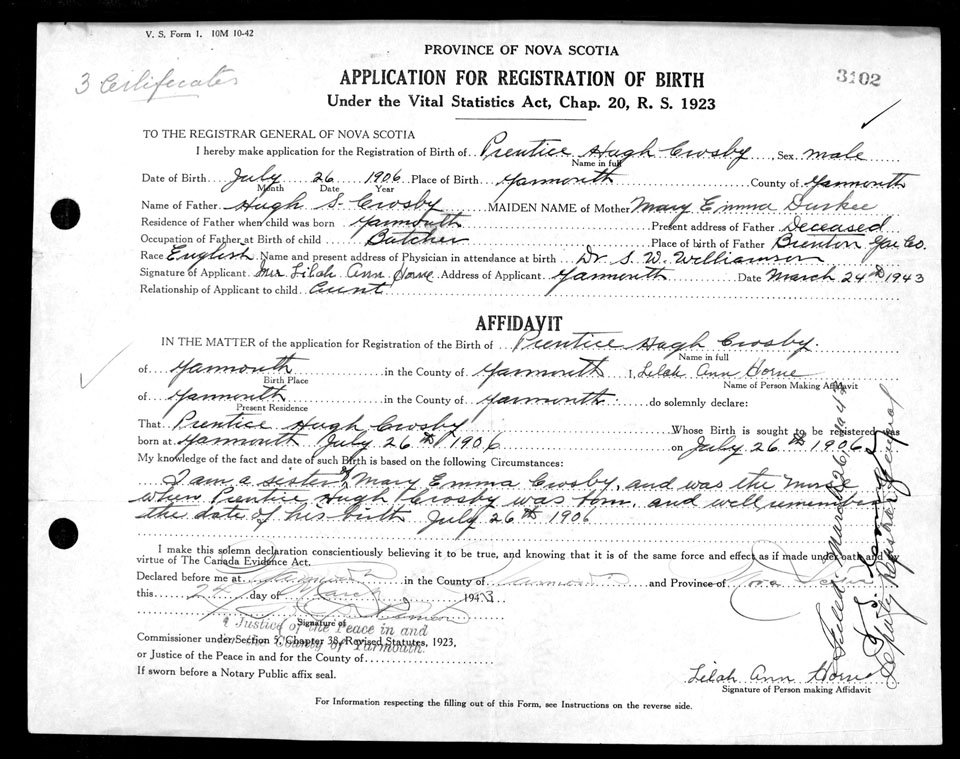 V. S. Form 1. 10M 10-42
PROVINCE OF NOVA SCOTIA
3 Certificates
APPLICATION FOR REGISTRATION OF BIRTH
3102
Under the Vital Statistics Act, Chap. 20, R. S. 1923
TO THE REGISTRAR GENERAL OF NOVA SCOTIA
I hereby make application for the Registration of Birth of Prentice Hugh Crosby Sex male
Name in full
Date of Birth July 26 1906 Place of Birth Yarmouth County of Yarmouth
Month Date Year
Name of Father Hugh S. Crosby MAIDEN NAME of Mother Mary Emma Durkee
Residence of Father when child was born Yarmouth Present address of Father Deceased
Occupation of Father at Birth of child Butcher Place of birth of Father Brenton Yar Co.
Race English Name and present address of Physician in attendance at birth Dr S. W. Williamson
Signature of Applicant Mrs Lilah Ann Horne Address of Applicant Yarmouth Date March 24th 1943
Relationship of Applicant to child Aunt
AFFIDAVIT
IN THE MATTER of the application for Registration of the Birth of Prentice Hugh Crosby.
Name in full
of Yarmouth in the County of Yarmouth I, Lilah Ann Horne
Birth Place Name of Person Making Affidavit
of Yarmouth in the County of Yarmouth do solemnly declare:
Present Residence
That Prentice Hugh Crosby Whose Birth is sought to be registered was
born at Yarmouth July 26th 1906 on July 26th 1906
My knowledge of the fact and date of such Birth is based on the following Circumstances:
I am a sister of Mary Emma Crosby, and was the nurse
when Prentice Hugh Crosby was born, and well remember
the date of his birth July 26th 1906
I make this solemn declaration conscientiously believing it to be true, and knowing that it is of the same force and effect as if made under oath and by
virtue of The Canada Evidence Act.
Declared before me at Yarmouth in the County of Yarmouth and Province of Nova Scotia
this 24 day of March 1943
Signature of
A Justice of the Peace in and
for the County of Yarmouth.
Commissioner under Section 5, Chapter 38, Revised Statutes, 1923,
or Justice of the Peace in and for the County of
If sworn before a Notary Public affix seal.
Lilah Ann Horne
Signature of Person making Affidavit
For Information respecting the filling out of this Form, see Instructions on the reverse side.
Filed March 26, 1943
Deputy Registrar General